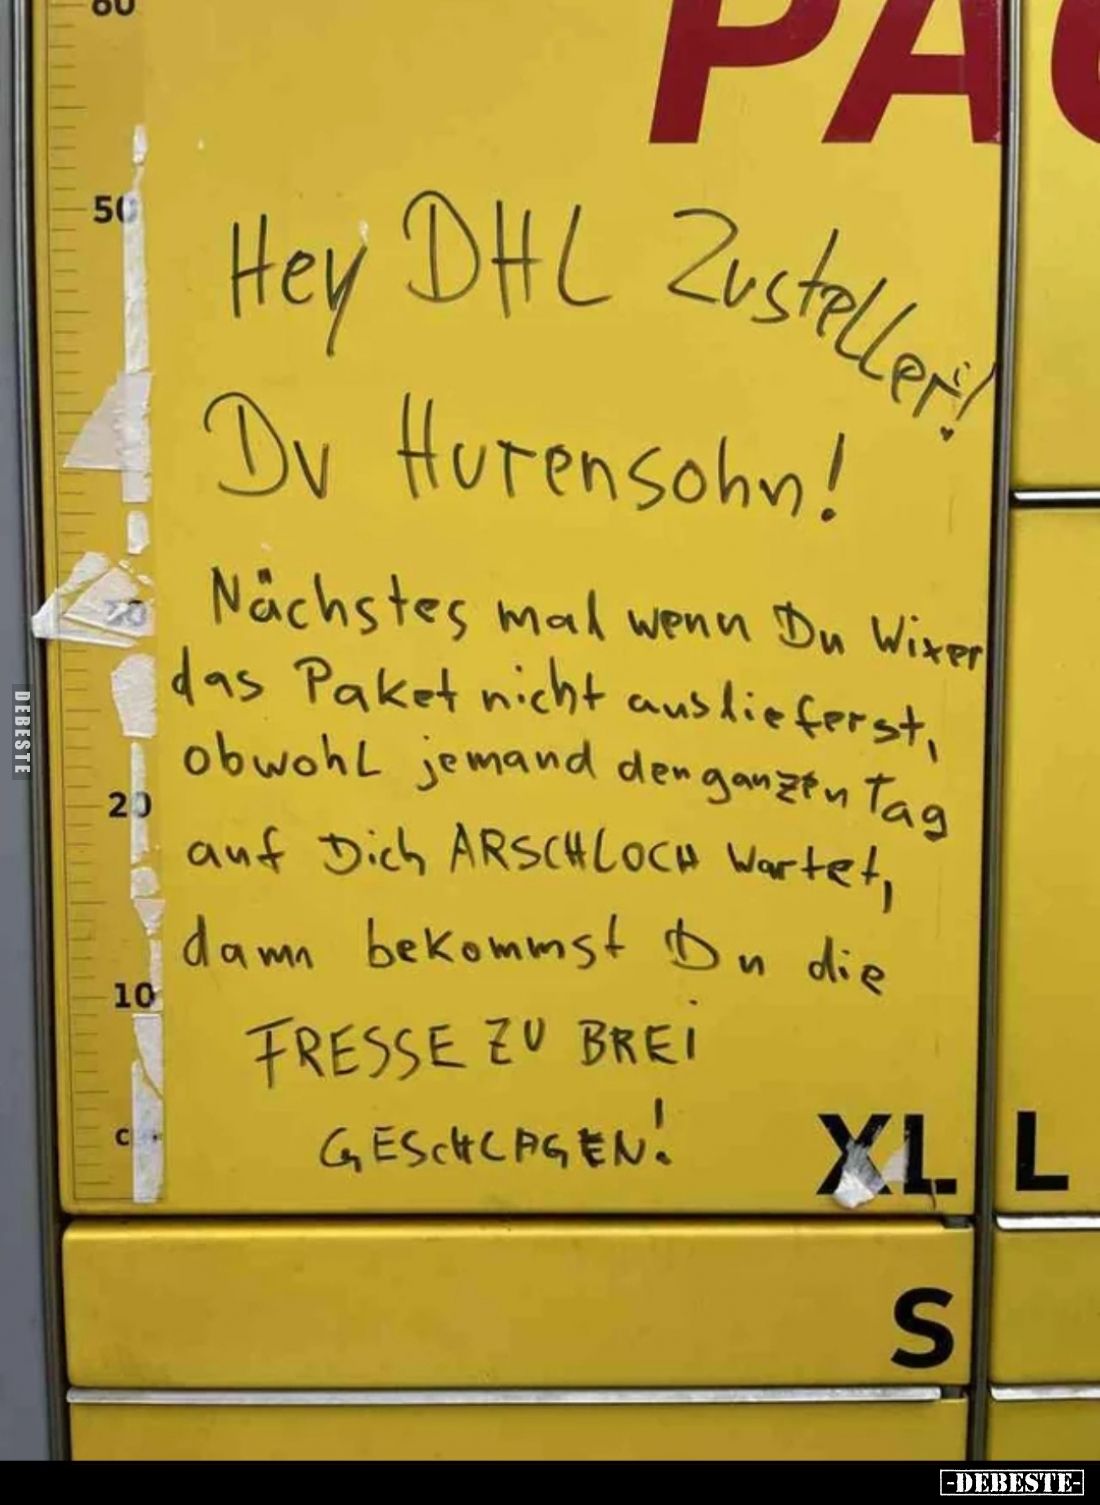 60
PAC
50
Hey DHL Zusteller!
Du Hurensohn!
30
Nächstes mal wenn Du Wixer
das Paket nicht auslieferst,
obwohl jemand den ganzen Tag
20
auf Dich ARSCHLOCH wartet,
dann bekommst Du die
10
FRESSE ZU BREI
GESCHLAGEN!
XL
L
S
DEBESTE
-DEBESTE-